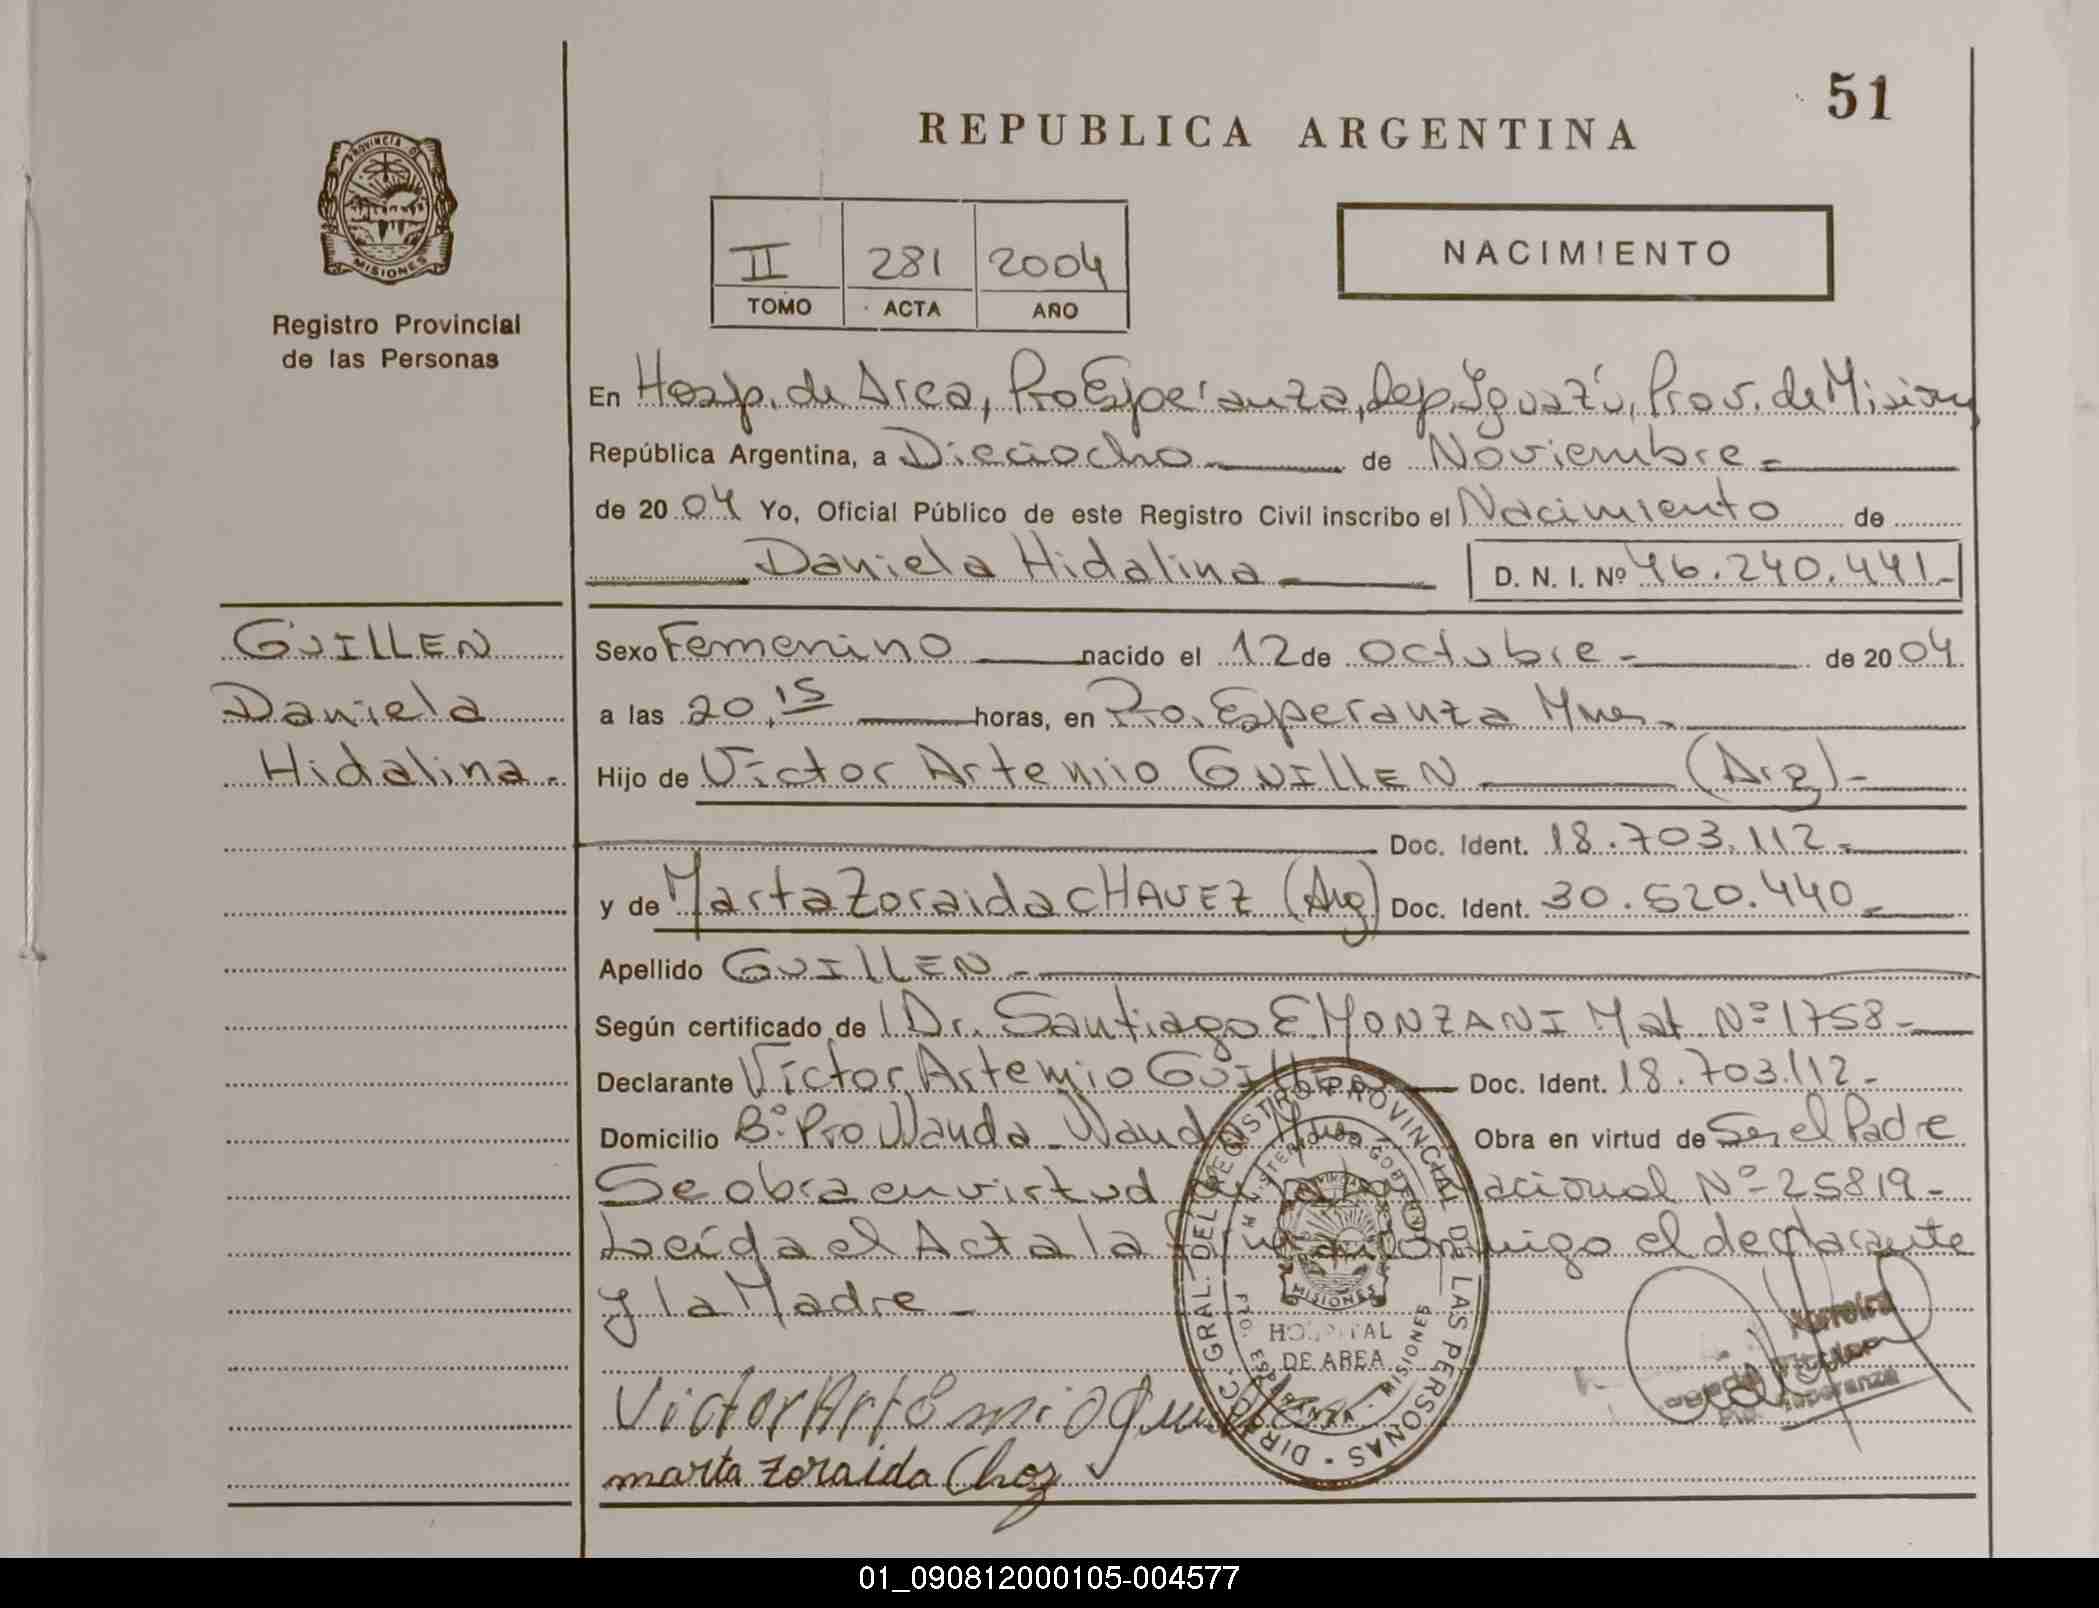 51
REPUBLICA ARGENTINA
PROVINCIA DE
MISIONES
Registro Provincial
de las Personas
II 281 2004
TOMO ACTA AÑO
NACIMIENTO
En Hosp. de Area, Pto Esperanza, Dep. Iguazú, Prov. de Mision
República Argentina, a Dieciocho de Noviembre
de 2004 Yo, Oficial Público de este Registro Civil inscribo el Nacimiento de
Daniela Hidalina D. N. I. Nº 46.240.441
GUILLEN
Daniela
Hidalina.
Sexo Femenino nacido el 12 de Octubre de 2004
a las 20,15 horas, en Pto. Esperanza Mnes.
Hijo de Victor Artemio GUILLEN (Arg)
Doc. Ident. 18.703.112
y de Marta Zoraida CHAVEZ (Arg) Doc. Ident. 30.520.440
Apellido GUILLEN
Según certificado de l Dr. Santiago E MONZANI Mat Nº 1758
Declarante Victor Artemio GUILLEN Doc. Ident. 18.703.112
Domicilio Bº Pto Wanda Wanda Mnes Obra en virtud de Ser el Padre
Se obra en virtud de la Ley Nacional Nº 25819
Leída el Acta la firman conmigo el declarante
y la Madre
Victor Artemio
marta zoraida Choz
DIRECC. GRAL. DEL REGISTRO PROVINCIAL DE LAS PERSONAS
HOSPITAL
DE AREA
PTO. ESPERANZA - MISIONES
MISIONES
Esperanza
01_090812000105-004577